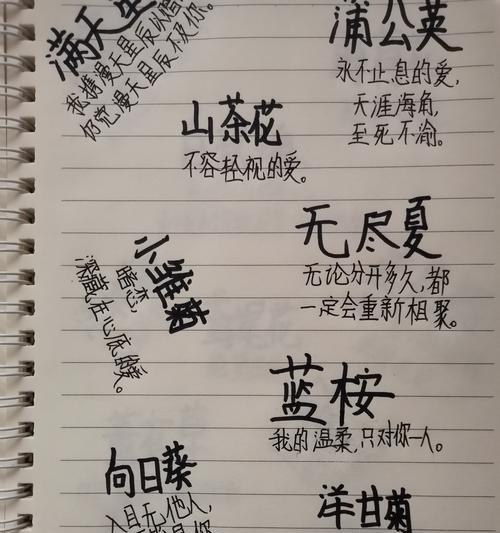 满天星
我携漫天星辰以赠你，
仍觉漫天星辰不及你。
蒲公英
永不止息的爱，
天涯海角，
至死不渝。
山茶花
不容轻视的爱。
无尽夏
无论分开多久，都
一定会重新相聚。
小雏菊
暗恋，
深藏在心底的爱。
蓝桉
我的温柔，只对你一人。
向日葵
入目无他人，
你
洋甘菊